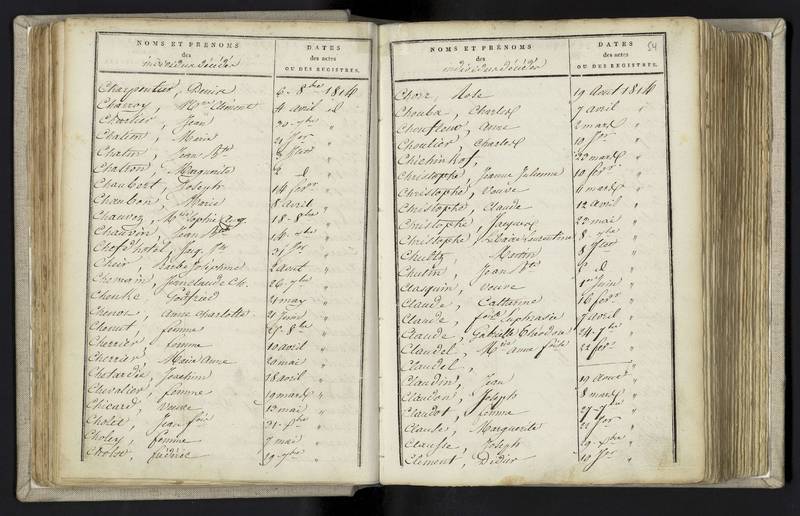 NOMS ET PRÉNOMS
des
individus décédés
DATES
des actes
OU DES REGISTRES.
Charpentier, Denise 6 - 8bre 1814
Charroy, Clément 4 avril id
Chevalier, Jean
Chatton, Marie
Chaton, Jean Bte
Chatton, Marguerite
Chaubert, Joseph 14 fevr "
Chaubon, Marie 8 avril "
Chauvoz, Sophie 18 - 8bre "
Chauvin, Jean Bte
Chef d'hotel, Jacq. Bte
Cheir, Barbe Joséphine 2 aout "
Chemoin, Jean Claude Ch. 26 - 7bre "
Chenke, Godfried 2 may "
Chenot, Anne Charlotte 21 Juin "
Chenut, femme 25 - 8bre "
Cherrier, femme 10 avril "
Cherrier, Marie Anne 20 mai "
Chetardie, Joachim 18 avril "
Chevalier, femme 19 mars "
Chicard, Veuve 13 mai "
Cholet, Jean
Choley, femme 7 mai "
Cholse, frédéric 19 - 7bre "
54
NOMS ET PRÉNOMS
des
individus décédés
DATES
des actes
OU DES REGISTRES.
Chore, Rose 19 Aout 1814
Chouba, Charles 7 avril "
Choufleur, Anne 2 mars "
Choulier, Charles 10 "
Chichinkof, 23 mars "
Christophe, Jeanne Julienne 10 fevr "
Christophe, Veuve 6 mars "
Christophe, Claude 12 avril "
Christophe, Jacques 22 mai "
Christophe, Laurentine
Chultz, Martin
Chutin, Jean Bte
Clasquin, Veuve 1er Juin "
Claude, Catherine 16 fevr "
Claude, Euphrasie 7 avril "
Claude, Gabrielle Théodore 24 - 7bre "
Claudel, Anne 22 fevr "
Claudel,
Claudin, Jean 19 Aout "
Claudon, Joseph 8 mars "
Claudot, femme
Clause, Marguerite
Clausse, Joseph
Clément, Didier